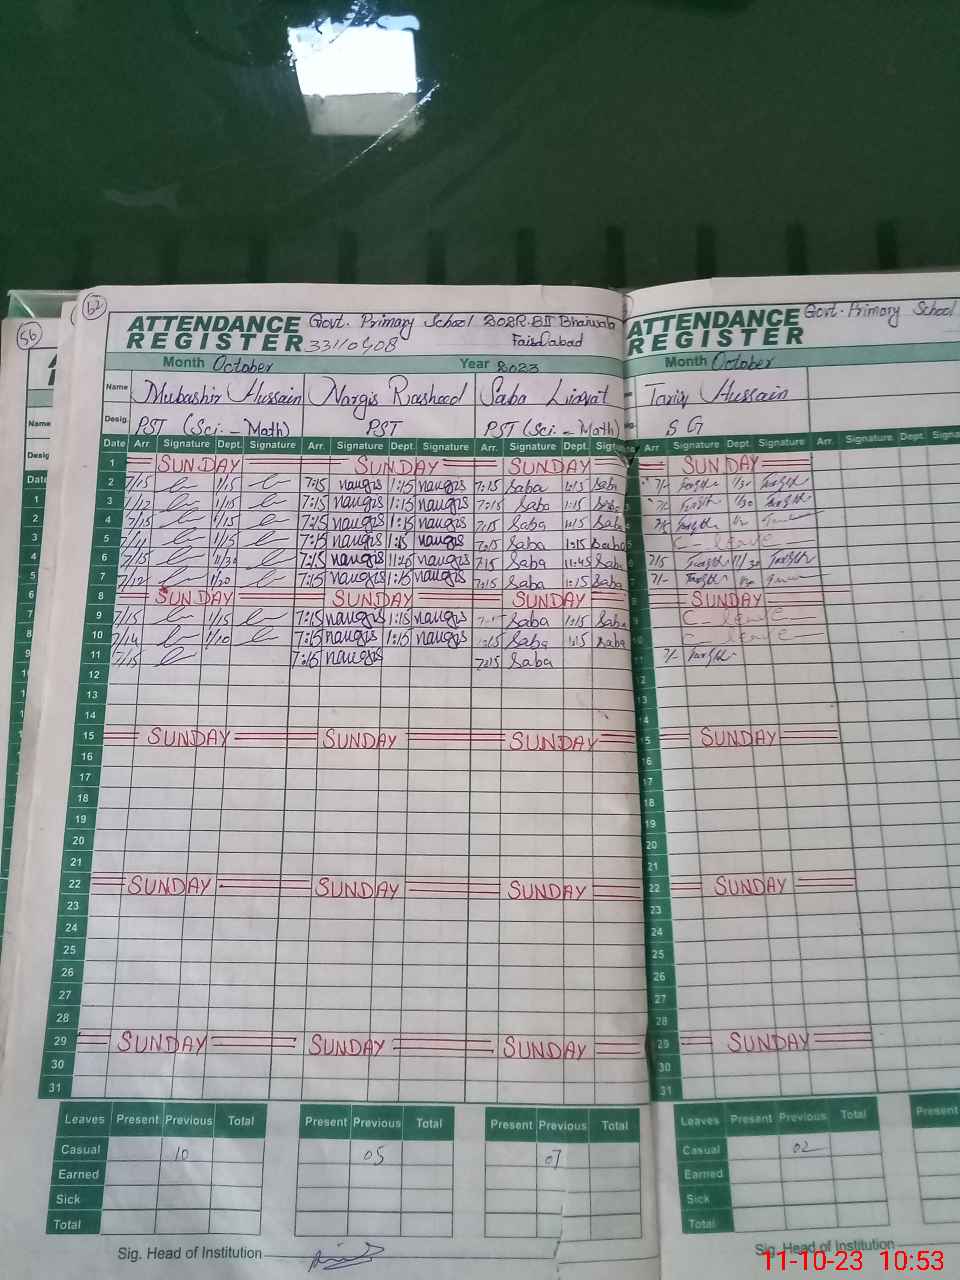 62
ATTENDANCE REGISTER
Govt. Primary School 202R.BII Bhaiwala
33110408 Faisalabad
Month October Year 2023
Name Mubashir Hussain Nargis Rasheed Saba Liaqat
Desig. PST (Sci - Math) PST PST (Sci - Math)
Date Arr. Signature Dept. Signature Arr. Signature Dept. Signature Arr. Signature Dept. Signature
1 SUNDAY SUNDAY SUNDAY
2 7/15 1/15 7:15 nargis 1:15 nargis 7:15 Saba 1:15 Saba
3 7/12 1/15 7:15 nargis 1:15 nargis 7:15 Saba 1:15 Saba
4 7/15 1/15 7:15 nargis 1:15 nargis 7:15 Saba 1:15 Saba
5 1/15 7:15 nargis 1:15 nargis 7:15 Saba 1:15 Saba
6 7/15 11/30 7:15 nargis nargis 7:15 Saba 11:45 Saba
7 7/12 1/20 7:15 nargis 1:15 nargis 7:15 Saba 1:15 Saba
8 SUNDAY SUNDAY SUNDAY
9 7/15 1/15 7:15 nargis 1:15 nargis Saba 1:15 Saba
10 7/14 1/10 7:15 nargis 1:15 nargis Saba 1:15 Saba
11 7/15 7:15 nargis 7:15 Saba
12
13
14
15 SUNDAY SUNDAY SUNDAY
16
17
18
19
20
21
22 SUNDAY SUNDAY SUNDAY
23
24
25
26
27
28
29 SUNDAY SUNDAY SUNDAY
30
31
Leaves Present Previous Total Present Previous Total Present Previous Total
Casual 10 05 07
Earned
Sick
Total
Sig. Head of Institution
ATTENDANCE REGISTER
Govt. Primary School
Month October
Tariq Hussain
S G
Arr. Signature Dept. Signature Arr. Signature Dept.
SUNDAY
C - leave
SUNDAY
C - leave
C - leave
11
12
13
14
15 SUNDAY
16
17
18
19
20
21
22 SUNDAY
23
24
25
26
27
28
29 SUNDAY
30
31
Leaves Present Previous Total Present
Casual 02
Earned
Sick
Total
Sig. Head of Institution
56
Name
Desig
Date
1
2
3
4
5
6
7
8
9
11-10-23 10:53